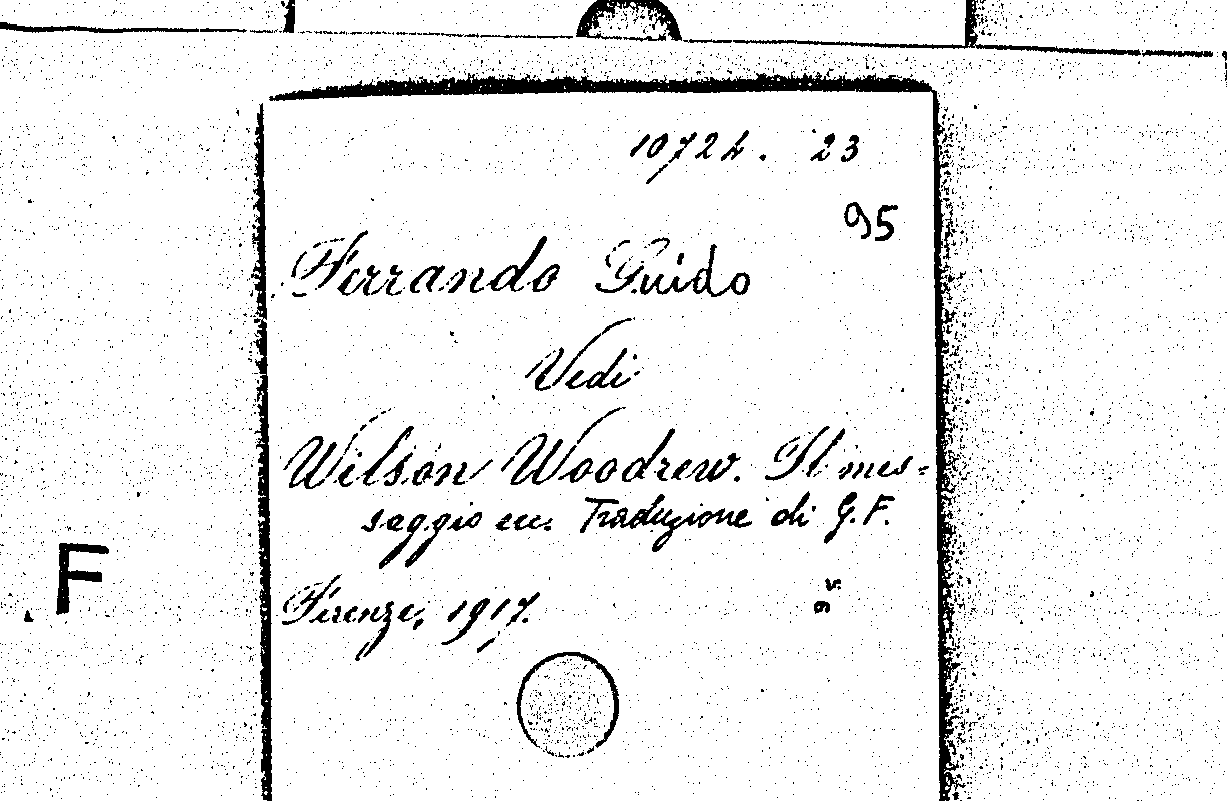 10724. 23
95
Ferrando Guido
Vedi
Wilson Woodrew. Il mes=
saggio ecc. Traduzione di G.F.
F
Firenze, 1917.